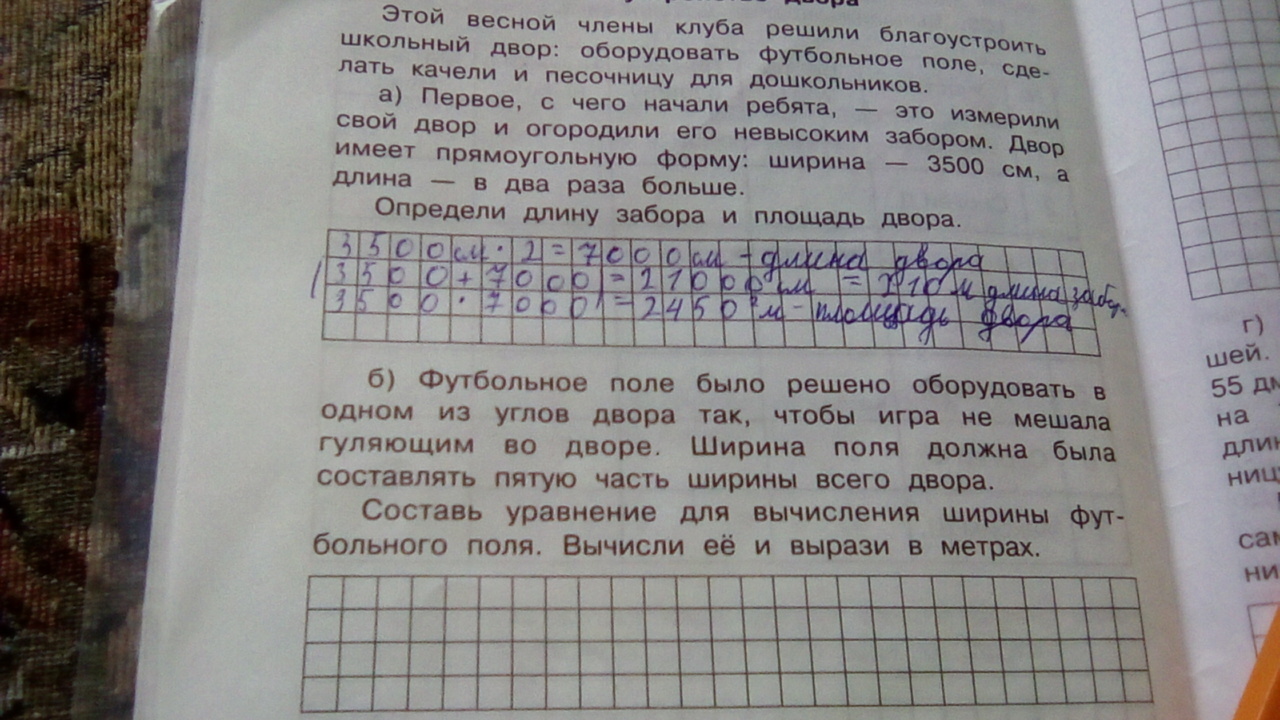 двора
Этой весной члены клуба решили благоустроить
школьный двор: оборудовать футбольное поле, сде-
лать качели и песочницу для дошкольников.
а) Первое, с чего начали ребята, — это измерили
свой двор и огородили его невысоким забором. Двор
имеет прямоугольную форму: ширина — 3500 см, а
длина — в два раза больше.
Определи длину забора и площадь двора.
3500см · 2 = 7000см - длина двора
(3500 + 7000 = 21000 см = 210 м длина забор
3500 · 7000 = 2450 м - площадь двора
б) Футбольное поле было решено оборудовать в
одном из углов двора так, чтобы игра не мешала
гуляющим во дворе. Ширина поля должна была
составлять пятую часть ширины всего двора.
Составь уравнение для вычисления ширины фут-
больного поля. Вычисли её и вырази в метрах.
г)
шей.
55 дм
на
длин
ниц
сам
ни